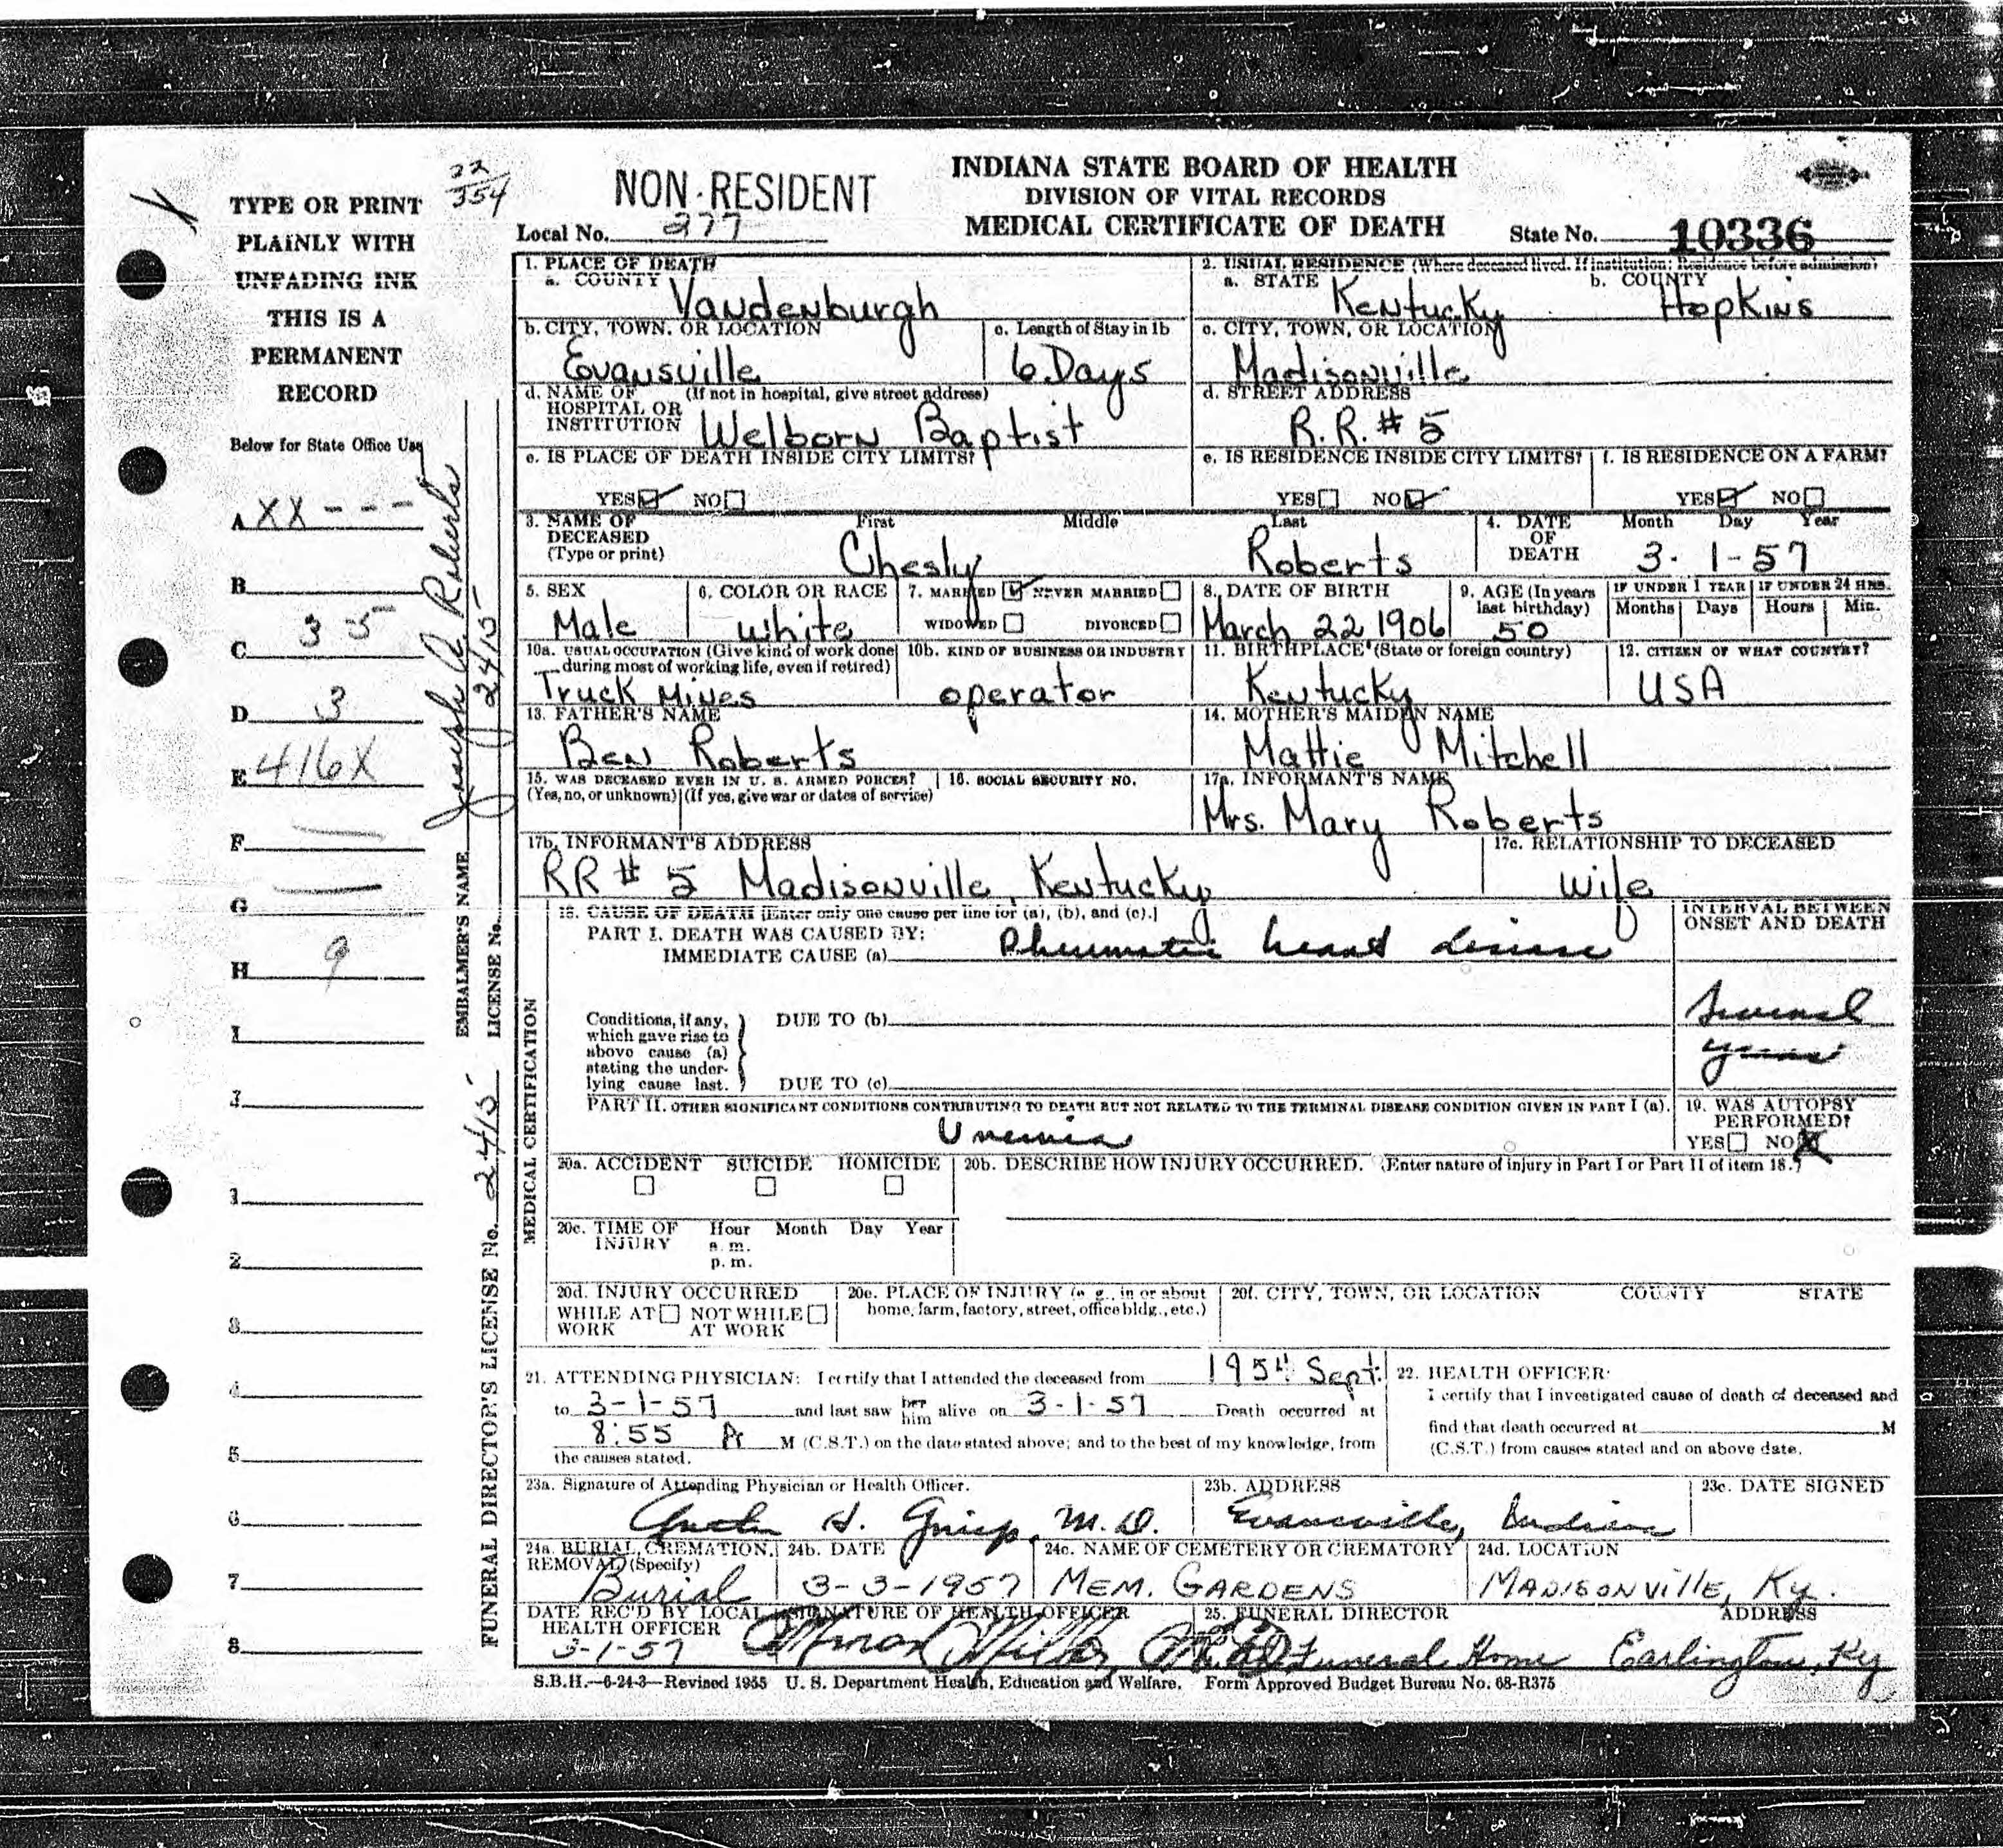 TYPE OR PRINT
PLAINLY WITH
UNFADING INK
THIS IS A
PERMANENT
RECORD
Below for State Office Use
A XX - - -
B
C 35
D 3
E 416X
F —
G —
H 9
I
J
1
2
3
4
5
6
7
8
22
354
EMBALMER'S NAME Joseph A. Roberts
LICENSE No. 2415
FUNERAL DIRECTOR'S LICENSE No. 2415
NON-RESIDENT
Local No. 277
INDIANA STATE BOARD OF HEALTH
DIVISION OF VITAL RECORDS
MEDICAL CERTIFICATE OF DEATH
State No. 10336
1. PLACE OF DEATH
a. COUNTY Vandenburgh
2. USUAL RESIDENCE (Where deceased lived. If institution: Residence before admission)
a. STATE Kentucky b. COUNTY Hopkins
b. CITY, TOWN, OR LOCATION Evansville
c. Length of Stay in 1b 6 Days
c. CITY, TOWN, OR LOCATION Madisonville
d. NAME OF HOSPITAL OR INSTITUTION (If not in hospital, give street address) Welborn Baptist
d. STREET ADDRESS R.R. # 5
e. IS PLACE OF DEATH INSIDE CITY LIMITS?
YES NO
e. IS RESIDENCE INSIDE CITY LIMITS?
YES NO
f. IS RESIDENCE ON A FARM?
YES NO
3. NAME OF DECEASED (Type or print)
First Middle Last
Chesly Roberts
4. DATE OF DEATH Month Day Year
3-1-57
5. SEX Male
6. COLOR OR RACE White
7. MARRIED NEVER MARRIED
WIDOWED DIVORCED
8. DATE OF BIRTH March 22, 1906
9. AGE (In years last birthday) 50
IF UNDER 1 YEAR Months Days
IF UNDER 24 HRS. Hours Min.
10a. USUAL OCCUPATION (Give kind of work done during most of working life, even if retired) Truck Mines
10b. KIND OF BUSINESS OR INDUSTRY operator
11. BIRTHPLACE (State or foreign country) Kentucky
12. CITIZEN OF WHAT COUNTRY? USA
13. FATHER'S NAME Ben Roberts
14. MOTHER'S MAIDEN NAME Mattie Mitchell
15. WAS DECEASED EVER IN U. S. ARMED FORCES?
(Yes, no, or unknown) (If yes, give war or dates of service)
16. SOCIAL SECURITY NO.
17a. INFORMANT'S NAME Mrs. Mary Roberts
17b. INFORMANT'S ADDRESS RR # 5 Madisonville, Kentucky
17c. RELATIONSHIP TO DECEASED Wife
MEDICAL CERTIFICATION
18. CAUSE OF DEATH [Enter only one cause per line for (a), (b), and (c).]
PART I. DEATH WAS CAUSED BY:
IMMEDIATE CAUSE (a) Rheumatic heart disease
INTERVAL BETWEEN ONSET AND DEATH
Several years
Conditions, if any, which gave rise to above cause (a) stating the underlying cause last.
DUE TO (b)
DUE TO (c)
PART II. OTHER SIGNIFICANT CONDITIONS CONTRIBUTING TO DEATH BUT NOT RELATED TO THE TERMINAL DISEASE CONDITION GIVEN IN PART I (a).
Uremia
19. WAS AUTOPSY PERFORMED?
YES NO X
20a. ACCIDENT SUICIDE HOMICIDE
20b. DESCRIBE HOW INJURY OCCURRED. (Enter nature of injury in Part I or Part II of item 18.)
20c. TIME OF INJURY Hour Month Day Year
a. m.
p. m.
20d. INJURY OCCURRED
WHILE AT WORK NOT WHILE AT WORK
20e. PLACE OF INJURY (e. g., in or about home, farm, factory, street, office bldg., etc.)
20f. CITY, TOWN, OR LOCATION COUNTY STATE
21. ATTENDING PHYSICIAN: I certify that I attended the deceased from 1954 Sept.
to 3-1-57 and last saw her him alive on 3-1-57 Death occurred at
8:55 A M (C.S.T.) on the date stated above; and to the best of my knowledge, from
the causes stated.
22. HEALTH OFFICER:
I certify that I investigated cause of death of deceased and
find that death occurred at M
(C.S.T.) from causes stated and on above date.
23a. Signature of Attending Physician or Health Officer.
M.D.
23b. ADDRESS Evansville, Indiana
23c. DATE SIGNED
24a. BURIAL, CREMATION, REMOVAL (Specify) Burial
24b. DATE 3-3-1957
24c. NAME OF CEMETERY OR CREMATORY MEM. GARDENS
24d. LOCATION MADISONVILLE, Ky.
DATE REC'D BY LOCAL HEALTH OFFICER 3-1-57
SIGNATURE OF HEALTH OFFICER
25. FUNERAL DIRECTOR ADDRESS
Funeral Home Earlington, Ky
S.B.H.—6-24-3—Revised 1955 U. S. Department Health, Education and Welfare. Form Approved Budget Bureau No. 68-R375